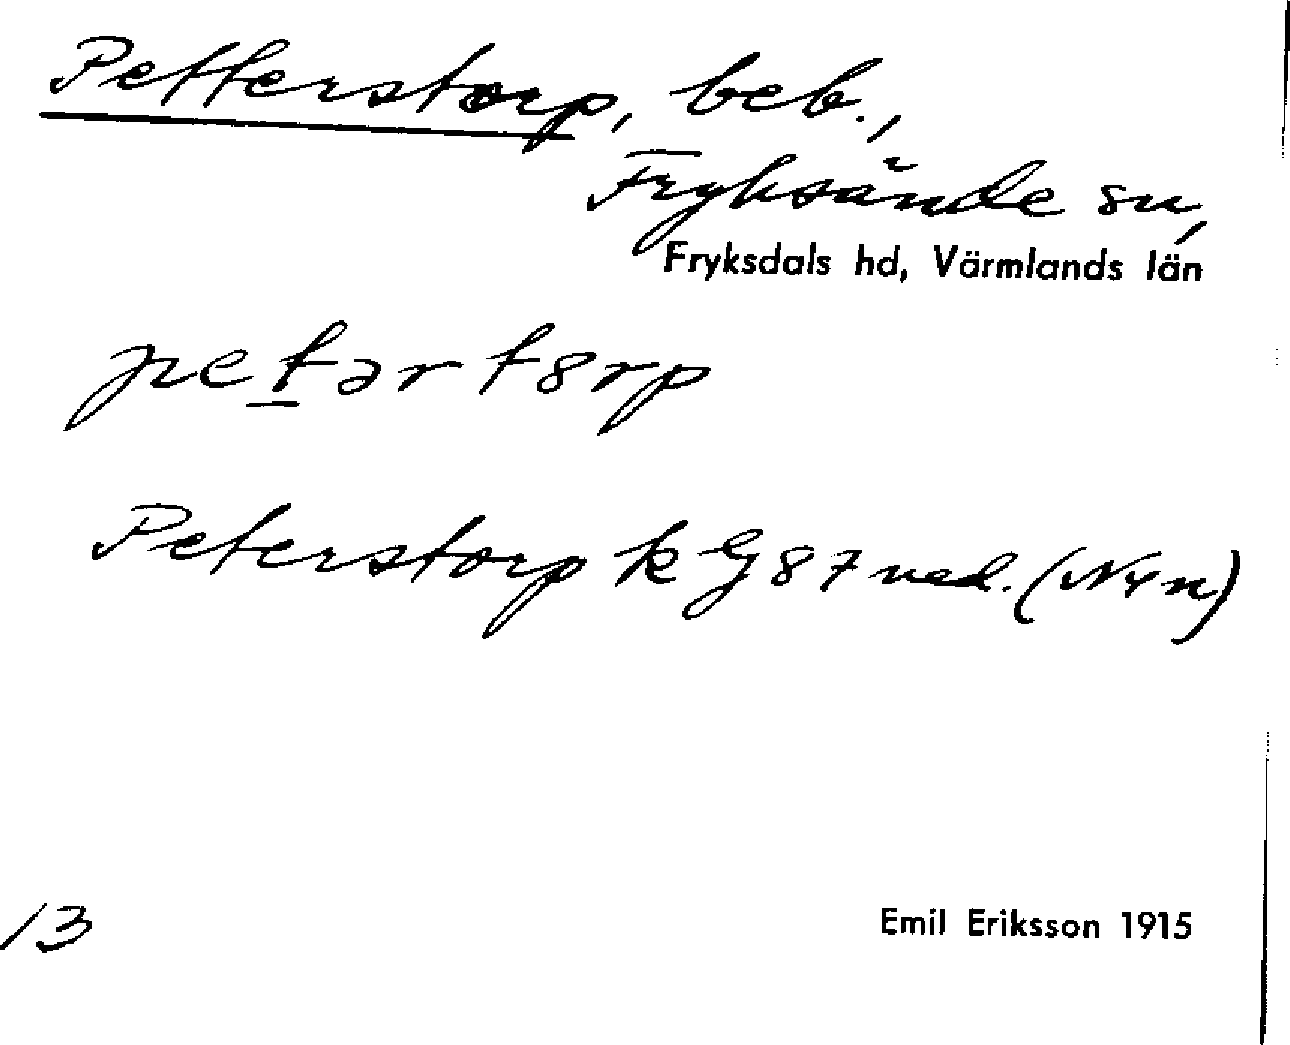 Petterstorp, beb.,
Fryksände sn,
Fryksdals hd, Värmlands län
petərtørp
Peterstorp k G 87 ned. (N4n)
13
Emil Eriksson 1915